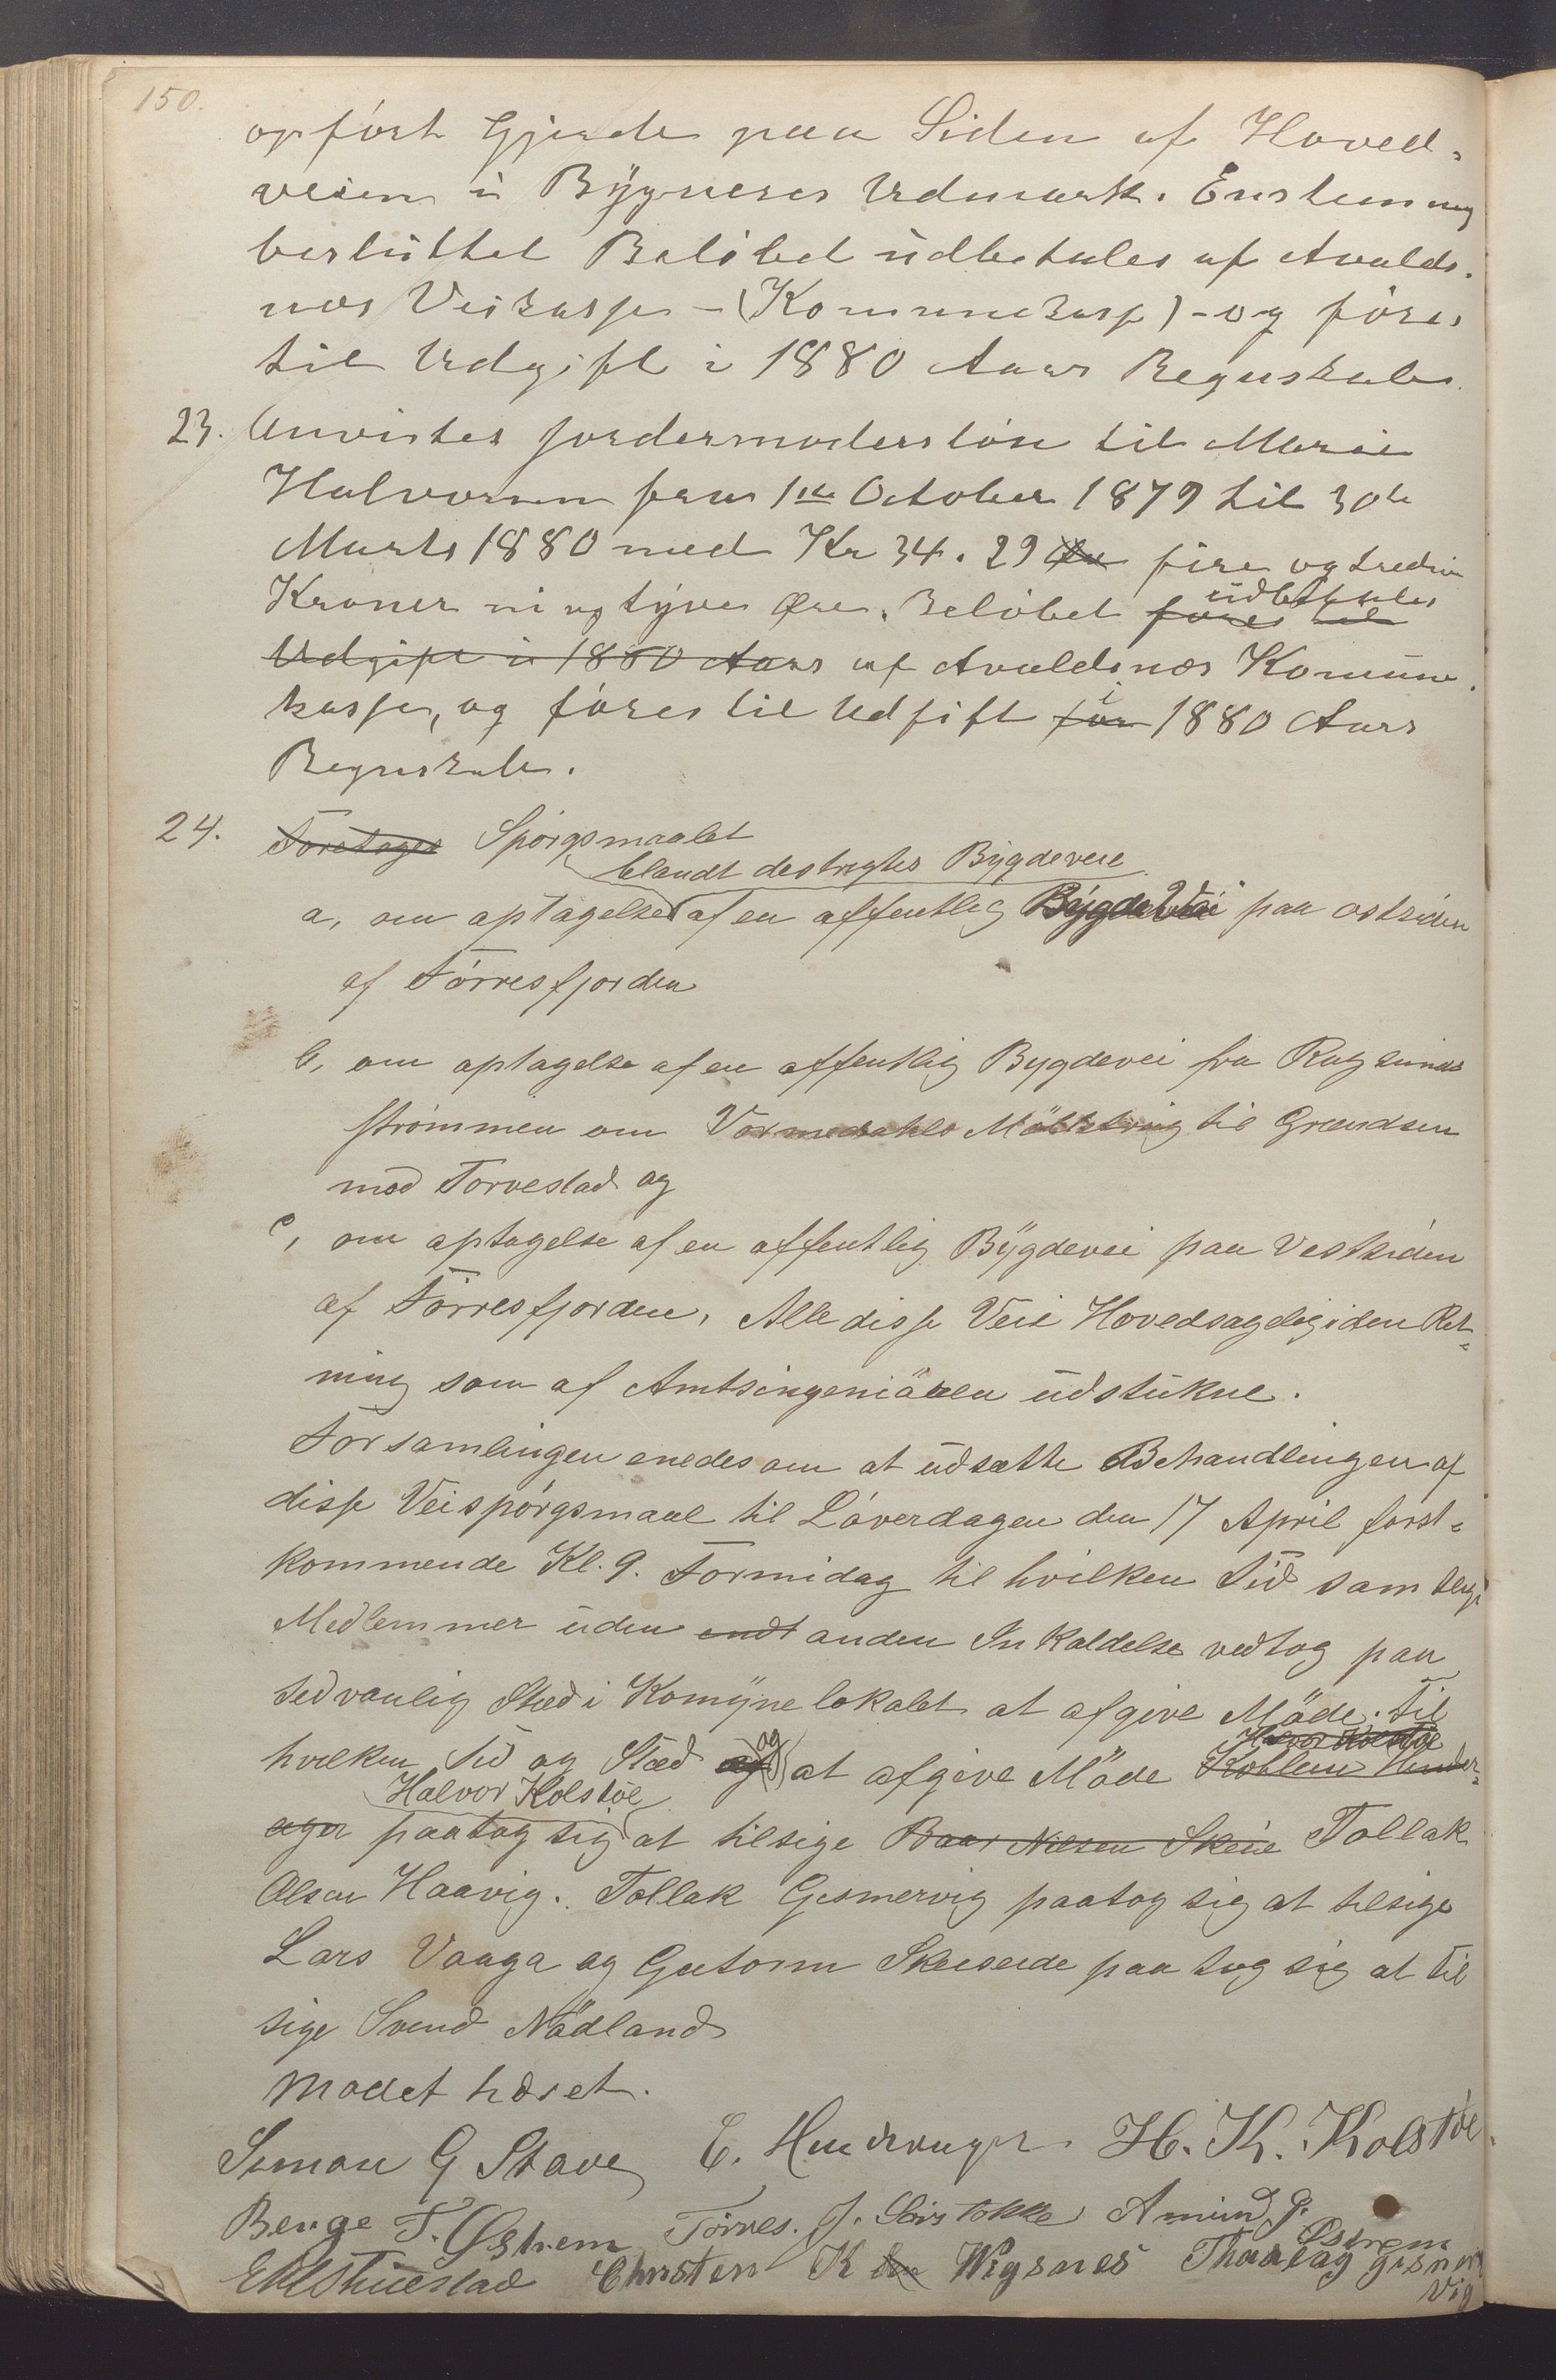 150.
opfört Gjerde paa Siden af Hoved-
veien i Bygnæses Udmark. Enstemmig
besluttet Belöbet udbetales af Avalds-
næs Veikasse - (Kommunekasse) - og föres
til Udgift i 1880 Aars Regnskab.
23. Anvistes Jordermodersløn til Marie
Halvorsen fra 1ste October 1879 til 30te
Marts 1880 med Kr 34. 29 fire og tredive
Kroner ni og tyve Øre. Belöbet föres til udbetales
Udgift i 1880 Aars af Avaldsnæs Komune-
kasse, og föres til Udgift för i 1880 Aars
Regnskab.
24. Foretages Spörgsmaalet
blandt destrigtes Bygdeveie
a, om optagelse af en offentlig Bygdevei paa ostsiden
af Førresfjorden
b, om optagelse af en offentlig Bygdevei fra
strömmen om Vormedahls til Grændsen
mod Torvestad og
c, om optagelse af en offentlig Bygdevei paa Vestsiden
af Förresfjorden. Alle disse Veie Hovedsagelig i den Ret-
ning som af Amtsingeniören udstukne.
Forsamlingen enedes om at udsætte Behandlingen af
disse Veispörgsmaal til Löverdagen den 17 April först-
kommende Kl. 9. Formidag til hvilken Tid samtlige
Medlemmer uden endt anden Inkaldelse vedtog paa
sedvanlig Sted i Komynelokalet at afgive Möde. Til
hvilken Tid og Sted og at afgive Möde Halvor Kolstöe
Halvor Kolstöe
ager paatog sig at tilsige Baar Nilsen Skeie Tollak
Olsen Haavig. Tollak Gismervig paatog sig at tilsige
Lars Vaaga og Gutorm Skeiseide paa tog sig at til
sige Svend Nådland
Mødet hævet.
Simon G Stave E. Hinderager H. K. Kolstöe
Benge T. Østrem Törres. J. Sörstokke Amund G. Østrem
Christen K Wigsnes Thorlag Gismer
vig